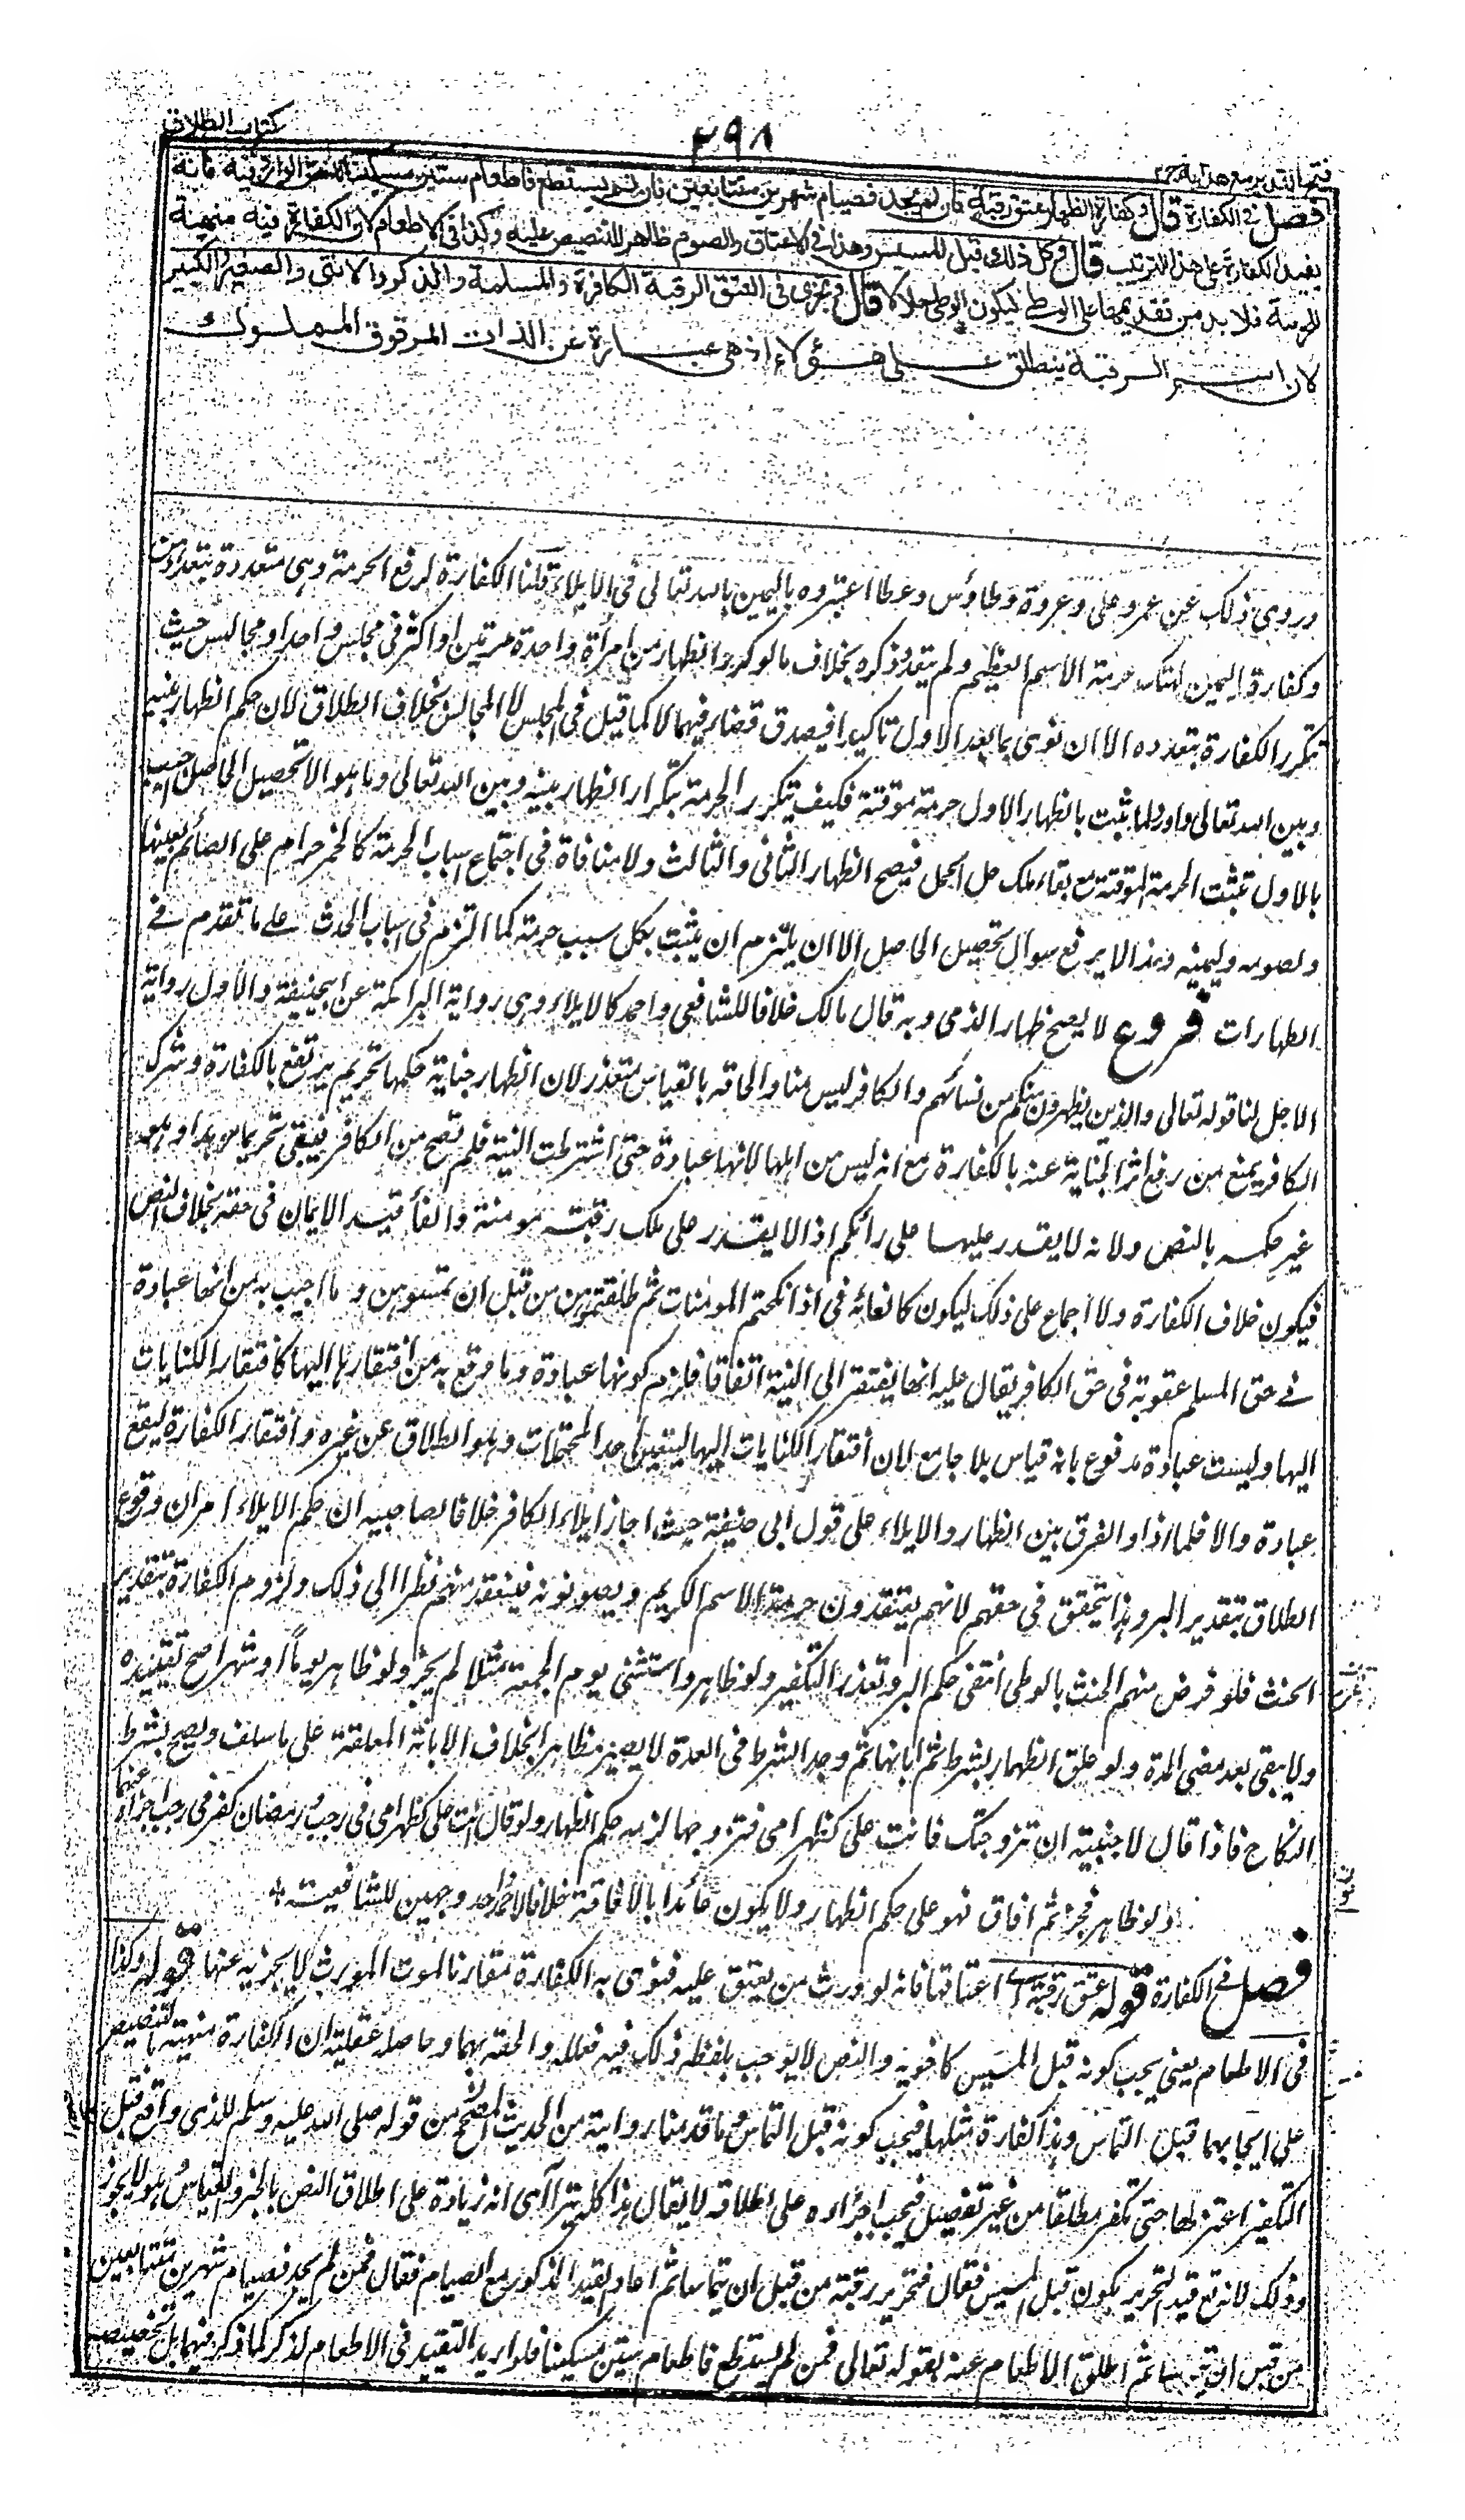 كتاب الطلاق
٣٩٨
فتح القدير مع هداية ج٢
فصل في الكفارة قال وكفارة الظهار عتق رقبة فان لم يجد فصيام شهرين متتابعين فان لم يستطع فاطعام ستين مسكينا للنص الوارد فيه فانه
يفيد الكفارة على هذا الترتيب قال وكل ذلك قبل المسيس وهذا في الاعتاق والصوم ظاهر للتنصيص عليه وكذا في الاطعام لان الكفارة فيه منهية
للحرمة فلا بد من تقديمها على الوطي ليكون الوطي حلالا قال وتجزى في العتق الرقبة الكافرة والمسلمة والذكر والانثى والصغير والكبير
لان اسم الرقبة ينطلق على هؤلاء اذ هي عبارة عن الذات المرقوق المملوك
وروى ذلك عن عمر وعلى وعروة وطاؤس وعطا اعتبروه باليمين بالله تعالى في الايلاء قلنا الكفارة لرفع الحرمة وهي متعددة بتعددهن
وكفارة اليمين لهتك حرمة الاسم العظيم ولم يتعدد ذكره بخلاف مالو كرر الظهار من امرأة واحدة مرتين او اكثر في مجلس واحد او مجالس حيث
تتكرر الكفارة بتعدده الا ان نوى بما بعد الاول تاكيدا فيصدق قضاء فيهما لا كما قيل في المجلس لا المجالس بخلاف الطلاق لان حكم الظهار بينه
وبين الله تعالى واورد لما ثبت بالظهار الاول حرمة موقتة فكيف تتكرر الحرمة بتكرار الظهار بينه وبين الله تعالى وما هو الا تحصيل الحاصل اجيب
بالاول تثبت الحرمة الموقتة مع بقاء ملك حل المحل فيصح الظهار الثاني والثالث ولا منافاة في اجتماع اسباب الحرمة كالخمر حرام على الصائم بعينها
ولصومه وليمينه وهذا لا يرفع سوال تحصيل الحاصل الا ان يلتزم ان يثبت بكل سبب حرمة كما التزم في اسباب الحدث على ما تقدم في
الطهارات فروع لا يصح ظهار الذمى وبه قال مالك خلافا للشافعى واحمد كالايلاء وهي رواية البرامكة عن ابى حنيفة والاول رواية
الاصل لنا قوله تعالى والذين يظهرون منكم من نسائهم والكافر ليس منا والحاقه بالقياس متعذر لان الظهار جناية حكمها تحريم يرتفع بالكفارة وشرك
الكافر يمنع من رفع اثر الجناية عنه بالكفارة مع انه ليس من اهلها لانها عبادة حتى اشترطت النية فلم تصح من الكافر فيبقى تحريما مؤبدا وهو
غير حكمه بالنص ولانه لا يقدر عليها على رائكم اذ لا يقدر على ملك رقبة مومنة والغاء قيد الايمان في حقه بخلاف النص
فيكون خلاف الكفارة ولا اجماع على ذلك ليكون كالغائه في اذا نكحتم المومنات ثم طلقتموهن من قبل ان تمسوهن وما اجيب به من انها عبادة
في حق المسلم عقوبة في حق الكافر يقال عليه انها يفتقر الى النية اتفاقا فلزم كونها عبادة وما وقع به من افتقارها اليها كافتقار الكنايات
اليها وليست عبادة مدفوع بانه قياس بلا جامع لان افتقار الكنايات اليها ليتعين احد المحتملات وهو الطلاق عن غيره وافتقار الكفارة ليقع
عبادة والا فلماذا والفرق بين الظهار والايلاء على قول ابى حنيفة حيث اجاز ايلاء الكافر خلافا لصاحبيه ان حكم الايلاء امران وقوع
الطلاق بتقدير البر وهذا يتحقق في حقهم لانهم يعتقدون حرمة الاسم الكريم ويصونونه فينعقد منهم نظرا الى ذلك ولزوم الكفارة بتقدير
الحنث فلو فرض منهم الحنث بالوطى انتفى حكم البر وتعذر التكفير ولو ظاهر واستثنى يوم الجمعة مثلا لم يجز ولو ظاهر يوما او شهرا صح تقييده
ولا يبقى بعد مضى المدة ولو علق الظهار بشرط ثم ابانها ثم وجد الشرط في العدة لا يصير مظاهرا بخلاف الابانة المعلقة على ما سلف ويصح بشرط
النكاح فاذا قال لاجنبية ان تزوجتك فانت على كظهر امى فتزوجها لزمه حكم الظهار ولو قال انت على كظهر امى في رجب ورمضان كفر في رجب اجزاه عنهما
ولو ظاهر فجن ثم افاق فهو على حكم الظهار ولا يكون عائدا بالافاقة خلافا لاحد وجهين للشافعية
فصل في الكفارة قوله عتق رقبة اى اعتاقها فانه لو ورث من يعتق عليه فنوى به الكفارة مقارنا لموت المورث لا يجزيه عنها قوله وكذا
في الاطعام يعنى يجب كونه قبل المسيس كاخويه والنص لا يوجب بلفظه ذلك فيه فعلله والحقه بهما وحاصله عقلية ان الكفارة منهية بالتنصيص
على ايجابهما قبل التماس وهذا كفارة مثلها فيجب كونه قبل التماس وما قدمنا رواية من الحديث من قوله صلى الله عليه وسلم للذى واقع قبل
التكفير اعتزلها حتى تكفر مطلقا من غير تفصيل فيجب اجراءه على اطلاقه لا يقال هذا كله يترا آى انه زيادة على اطلاق النص بالخبر والقياس وهو لا يجوز
وذلك لانه تع قيد التحرير بكون قبل المسيس فقال فتحرير رقبة من قبل ان يتماسا ثم اعاد القيد المذكور مع الصيام فقال فمن لم يجد فصيام شهرين متتابعين
من قبل ان يتماسا ثم اطلق الاطعام عنه بقوله تعالى فمن لم يستطع فاطعام ستين مسكينا فلو اريد التقييد في الاطعام لذكر كما ذكر فيهما بل تخصيصه